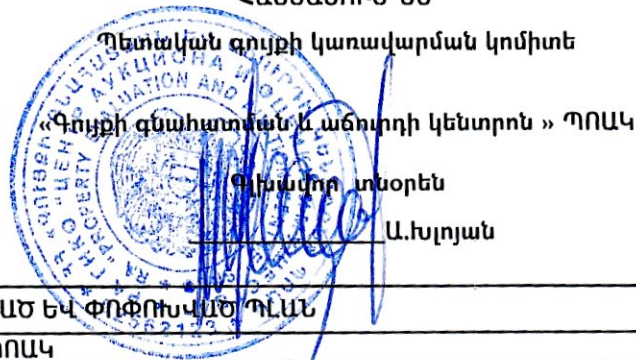 Պետական գույքի կառավարման կոմիտե
«Գույքի գնահատման և աճուրդի կենտրոն » ՊՈԱԿ
Գլխավոր տնօրեն
Ա.Խլոյան
ԱԾ ԵՎ ՓՈՓՈԽՎԱԾ ՊԼԱՆ
ՊՈԱԿ